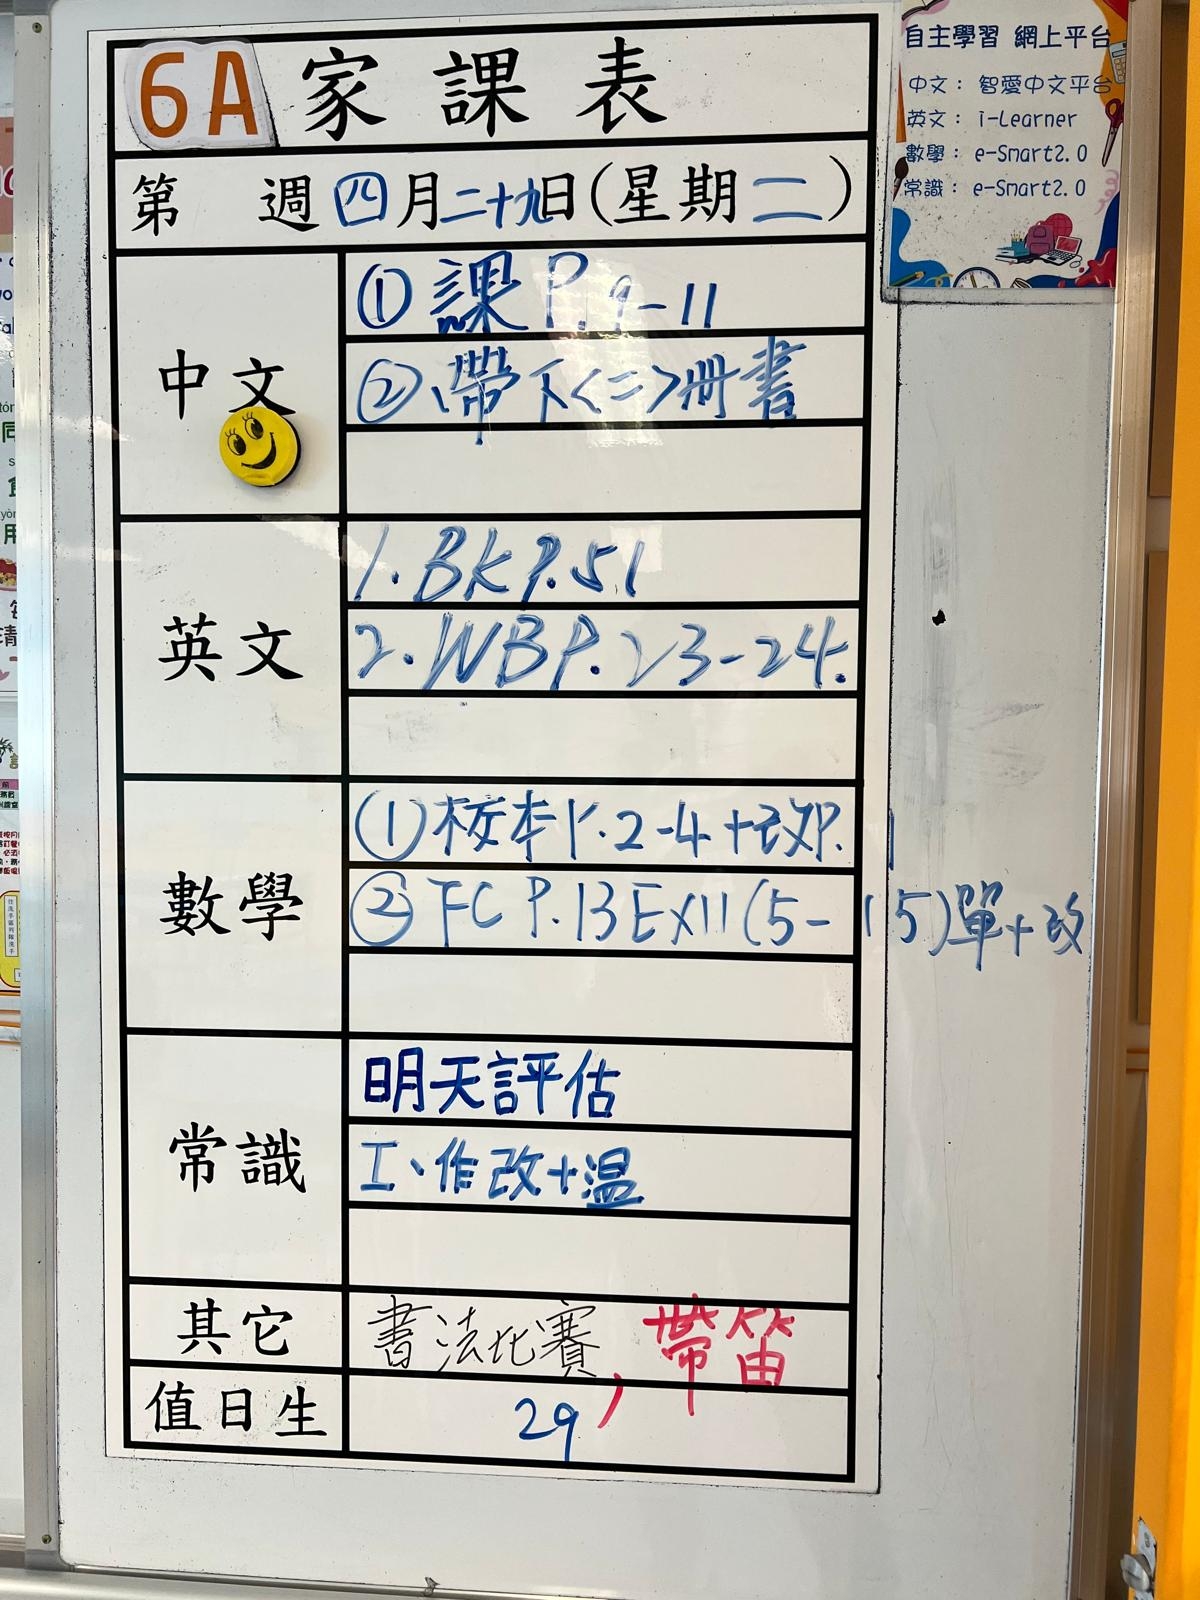 6A 家課表
第 週 四月二十九日(星期二)
中文
① 課 P.9-11
② 帶下<二>冊書
英文
1. BK P.51
2. WB P.23-24.
數學
① 校本 P.2-4+改P.1
② FC P.13 Ex11(5-15)單+改
常識
明天評估
工、作改+温
其它
書法比賽, 帶笛
值日生
29
自主學習 網上平台
中文: 智愛中文平台
英文: i-Learner
數學: e-Smart2.0
常識: e-Smart2.0